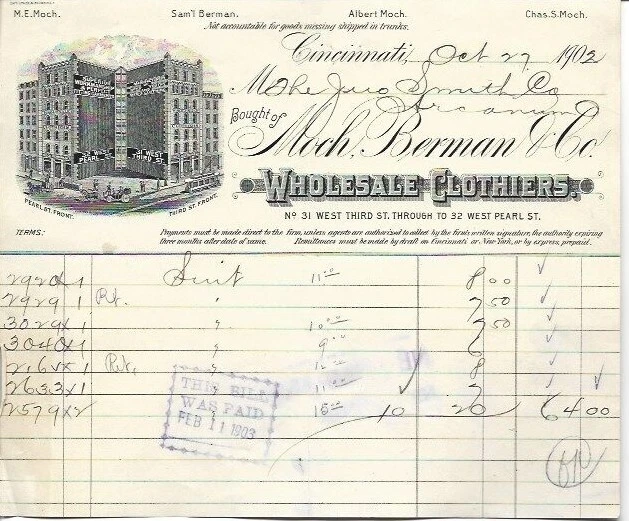 M.E. Moch. Sam'l Berman. Albert Moch. Chas. S. Moch.
Not accountable for goods missing shipped in trunks.
Cincinnati, Oct 27 1902
M The Jno Smith Co
Arcanum O
Bought of
Moch, Berman & Co.
WHOLESALE CLOTHIERS,
No 31 WEST THIRD ST. THROUGH TO 32 WEST PEARL ST.
32 WEST PEARL ST.
31 WEST THIRD ST.
PEARL ST. FRONT.
THIRD ST. FRONT.
TERMS:
Payments must be made direct to the firm, unless agents are authorized to collect by the firm's written signature, the authority expiring
three months after date of same. Remittances must be made by draft on Cincinnati or New York, or by express, prepaid.
1 Suit 11 00 8 00
2929 1 Rt. " 7 50
3029 x 1 " 10 00 7 50
3040 x 1 " 9 00 6
1 Rt. " 8
2633 x 1 " 11 00 7
2579 x 2 " 15 00 10 20 64 00
THIS BILL
WAS PAID
FEB 11 1903